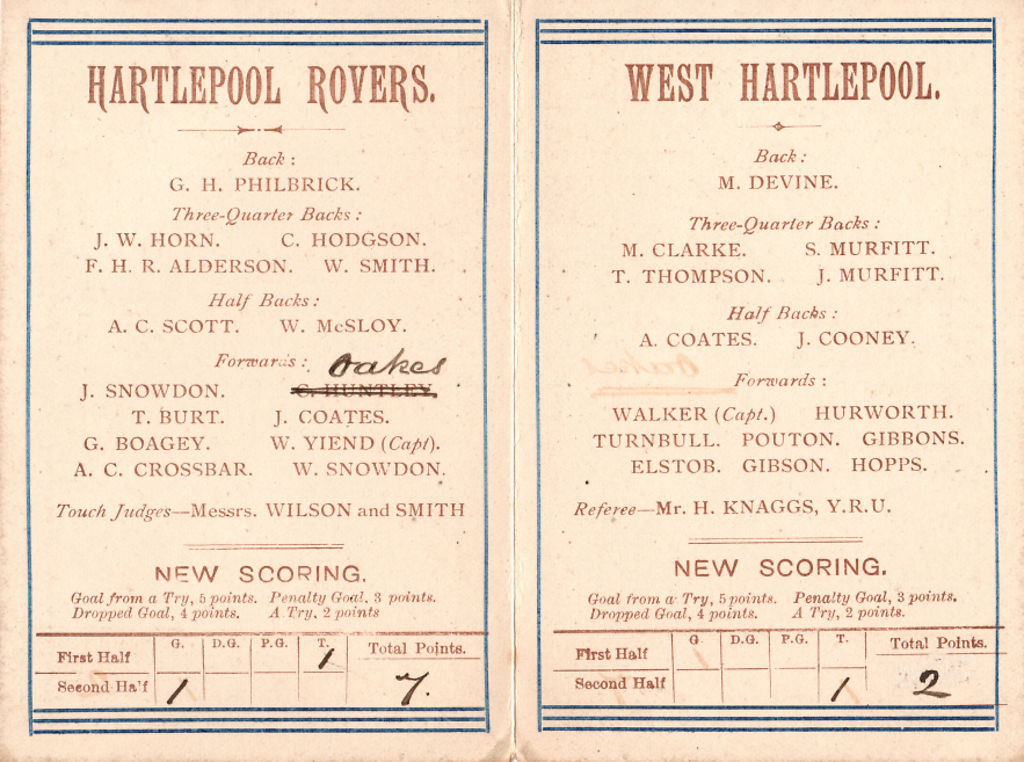 HARTLEPOOL ROVERS.
Back :
G. H. PHILBRICK.
Three-Quarter Backs :
J. W. HORN. C. HODGSON.
F. H. R. ALDERSON. W. SMITH.
Half Backs :
A. C. SCOTT. W. McSLOY.
Forwards : Oakes
J. SNOWDON. C. HUNTLEY.
T. BURT. J. COATES.
G. BOAGEY. W. YIEND (Capt).
A. C. CROSSBAR. W. SNOWDON.
Touch Judges—Messrs. WILSON and SMITH
NEW SCORING.
Goal from a Try, 5 points. Penalty Goal, 3 points.
Dropped Goal, 4 points. A Try, 2 points
G. D.G. P.G. T. Total Points.
First Half 1
Second Half 1 7.
WEST HARTLEPOOL.
Back :
M. DEVINE.
Three-Quarter Backs :
M. CLARKE. S. MURFITT.
T. THOMPSON. J. MURFITT.
Half Backs :
A. COATES. J. COONEY.
Forwards :
WALKER (Capt.) HURWORTH.
TURNBULL. POUTON. GIBBONS.
ELSTOB. GIBSON. HOPPS.
Referee—Mr. H. KNAGGS, Y.R.U.
NEW SCORING.
Goal from a Try, 5 points. Penalty Goal, 3 points.
Dropped Goal, 4 points. A Try, 2 points.
G. D.G. P.G. T. Total Points.
First Half
Second Half 1 2